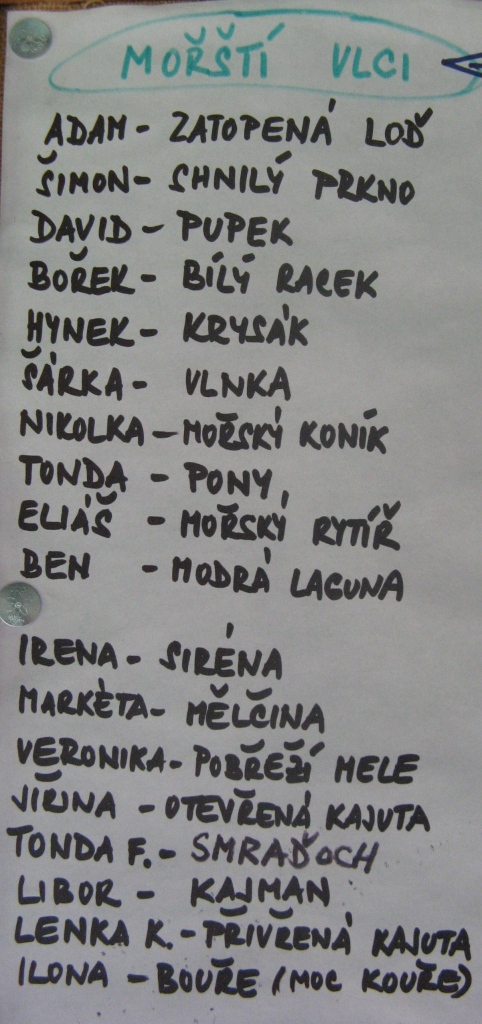 MOŘŠTÍ VLCI
ADAM - ZATOPENÁ LOĎ
ŠIMON - SHNILÝ PRKNO
DAVID - PUPEK
BOŘEK - BÍLÝ RACEK
HYNEK - KRYSÁK
ŠÁRKA - VLNKA
NIKOLKA - MOŘSKÝ KONÍK
TONDA - PONY
ELIÁŠ - MOŘSKÝ RYTÍŘ
BEN - MODRÁ LAGUNA
IRENA - SIRÉNA
MARKÉTA - MĚLČINA
VERONIKA - POBŘEŽÍ MELE
JIŘINA - OTEVŘENÁ KAJUTA
TONDA F. - SMRAĎOCH
LIBOR - KAJMAN
LENKA K. - PŘIVŘENÁ KAJUTA
ILONA - BOUŘE (MOC KOUŘE)